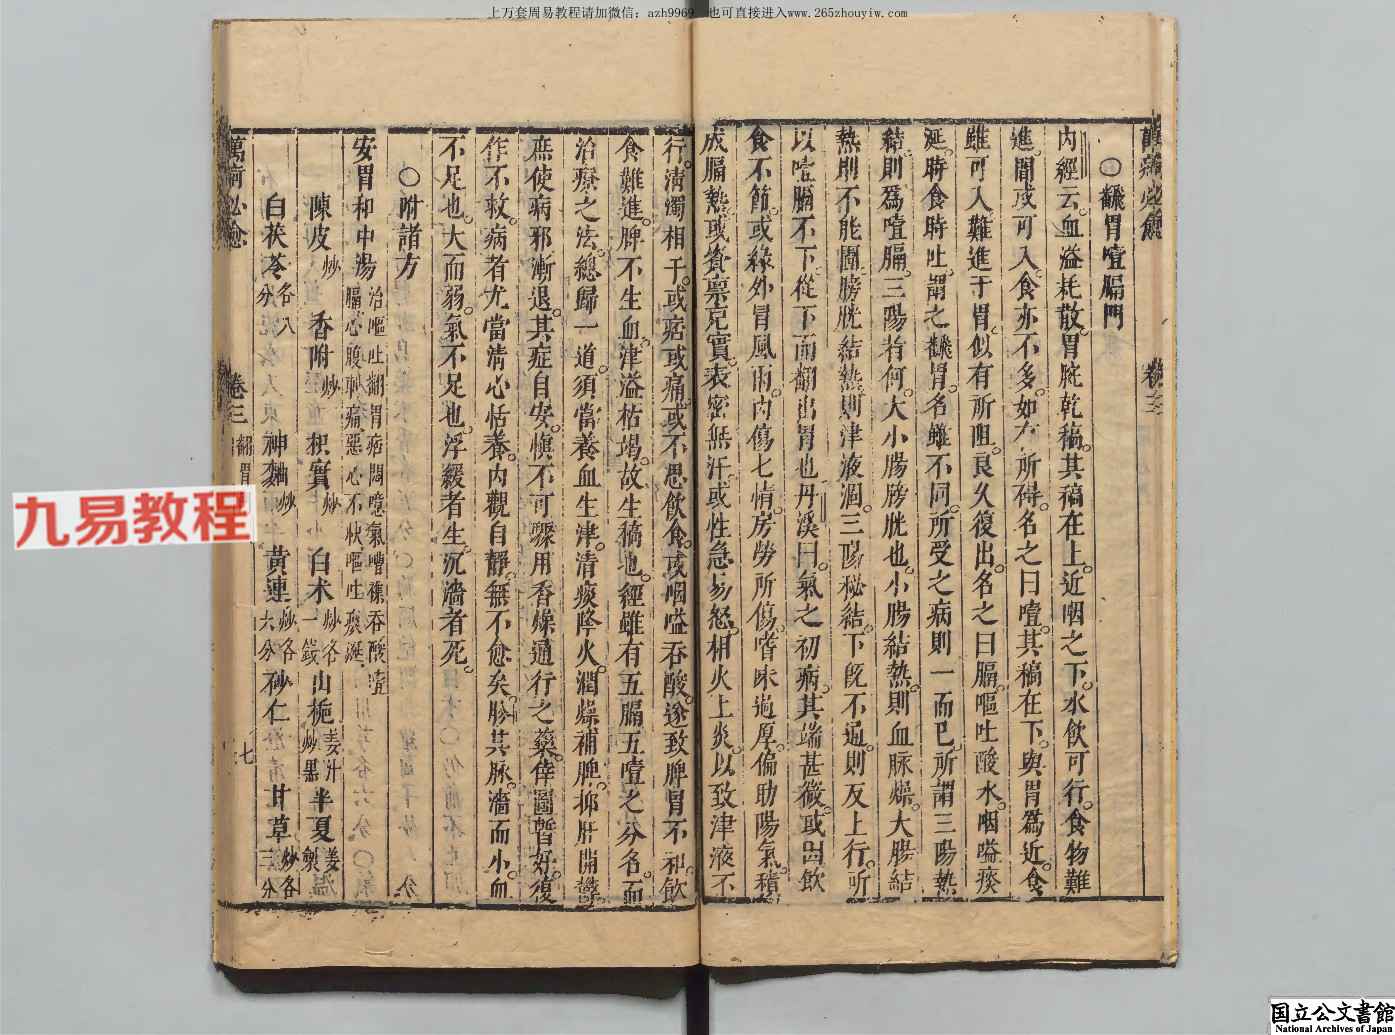 上万套周易教程请加微信：azh9969，也可直接进入www.265zhouyiw.com
卷三
〇翻胃噎膈門
內經云血溢耗散胃脘乾稿其稿在上近咽之下水飲可行食物難
進間或可入食亦不多如有所碍名之曰噎其稿在下與胃為近食
雖可入難進于胃似有所阻良久復出名之曰膈嘔吐酸水咽嗌痰
涎時食時吐謂之翻胃名雖不同所受之病則一而已所謂三陽熱
結則爲噎膈三陽者何大小腸膀胱也小腸結熱則血脉燥大腸結
熱則不能圊膀胱結熱則津液涸三陽秘結下旣不通則反上行所
以噎膈不下從下而翻出胃也丹溪曰氣之初病其端甚微或因飲
食不節或緣外冒風雨內傷七情房勞所傷嗜味過厚偏助陽氣積
成膈熱或資禀克實表密無汗或性急易怒相火上炎以致津液不
行清濁相干或痞或痛或不思飲食或咽嗌吞酸遂致脾胃不和飲
食難進脾不生血津溢枯竭故生稿也經雖有五膈五噎之分名而
治療之法總歸一道須當養血生津清痰降火潤燥補脾抑肝開鬱
庶使病邪漸退其症自安慎不可驟用香燥通行之藥倖圖暫好復
作不救病者尤當清心恬養內觀自靜無不愈矣胗其脉濇而小血
不足也大而弱氣不足也浮緩者生沉濇者死
〇附諸方
安胃和中湯治嘔吐翻胃痞悶噫氣嘈雜吞酸噎膈心腹刺痛惡心不快嘔吐痰涎
陳皮炒 香附炒 枳實炒 白术炒各一錢 山梔姜汁炒黑 半夏姜製
白茯苓各八分 神麯炒 黃連炒各六分 砂仁 甘草炒各三分
萬病必愈 卷三 翻胃 七
九易教程
国立公文書館
National Archives of Japan